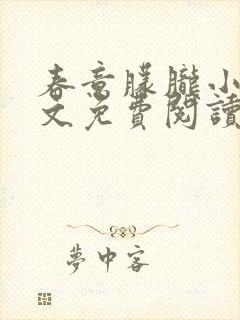 春意朦朧小
文免費閱讀
夢中客